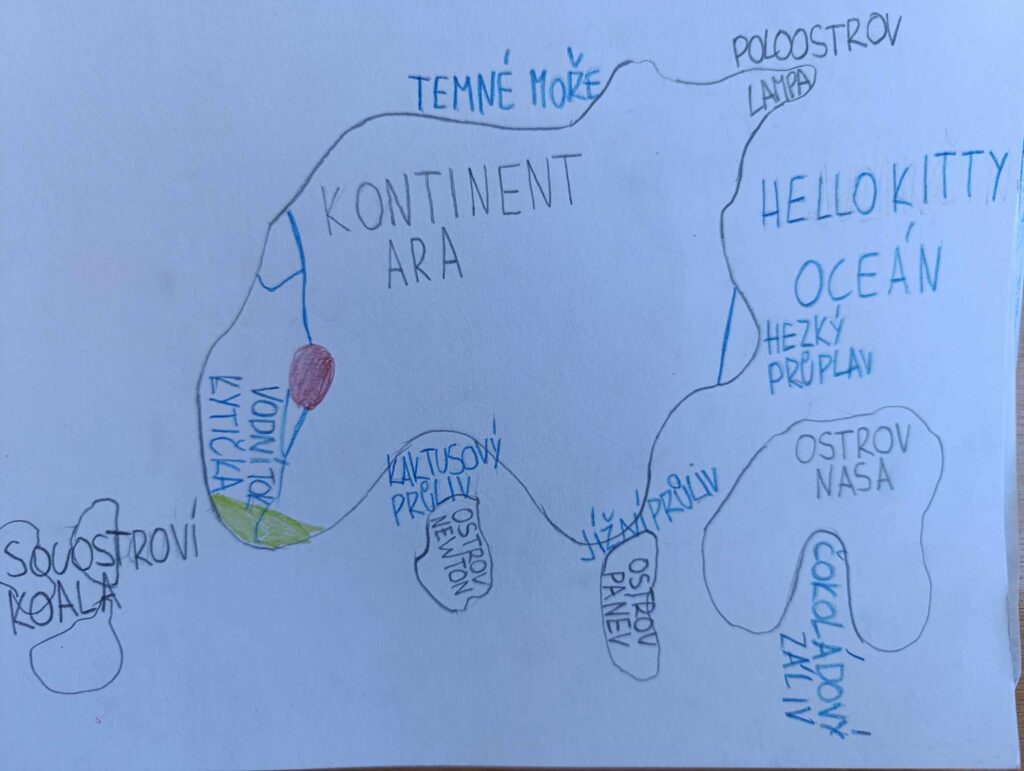 POLOOSTROV
LAMPA
TEMNÉ MOŘE
KONTINENT
ARA
HELLO KITTY
OCEÁN
HEZKÝ
PRŮPLAV
VODNÍ TOK
KYTIČKA
KAKTUSOVÝ
PRŮLIV
OSTROV
NEWTON
JÍŽNÍ PRŮLIV
OSTROV
PÁNEV
OSTROV
NASA
ČOKOLÁDOVÝ
ZÁLIV
SOUOSTROVÍ
KOALA